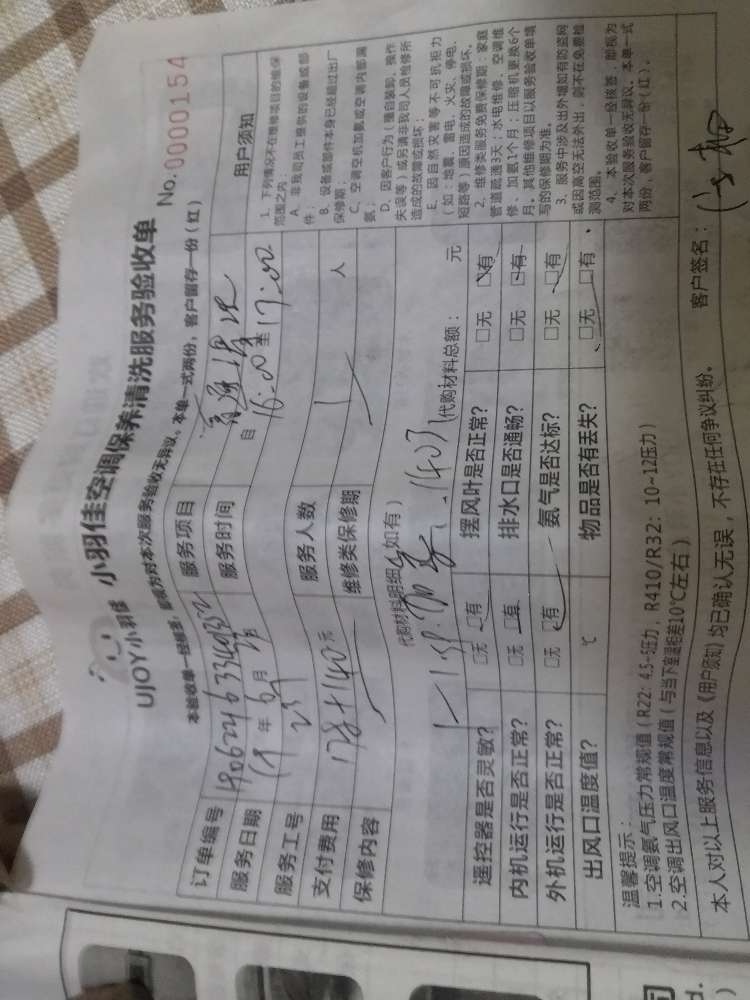 UJOY小羽佳 小羽佳空调保养清洗服务验收单
No. 0000154
本验收单一经核签，即视为对本次服务验收无异议。本单一式两份，客户留存一份（红）
订单编号
服务项目
服务日期 19 年 6 月 日
服务时间 16:00 至 17:00
服务工号 231
支付费用 178+140 元
服务人数 1 人
保修内容
维修类保修期
代购材料明细（如有）
（代购材料总额： 元
遥控器是否灵敏？ □无 □有
摆风叶是否正常？ □无 □有
内机运行是否正常？ □无 □有
排水口是否通畅？ □无 □有
外机运行是否正常？ □无 □有
氨气是否达标？ □无 □有
出风口温度值？ ℃
物品是否有丢失？ □无 □有
用户须知
1、下列情况不在维修项目的维保
范围之内：
A、非我司员工提供的设备或部
件；
B、设备或部件本身已经超过出厂
保修期；
C、空调空机加氨或空调内部漏
氨；
D、因客户行为（擅自装卸、操作
失误等）或另请非我司人员检修所
造成的故障或损坏；
E、因自然灾害等不可抗拒力
（如：地震、雷电、火灾、停电、
短路等）原因造成的故障或损坏。
2、维修类服务免费保修期：家庭
管道疏通3天；水电维修、空调维
修、加氨1个月；压缩机更换6个
月。其他维修项目以服务验收单填
写的保修期为准。
3、服务中涉及出外墙如有防盗网
或因高空无法外出，则不在免费检
测范围。
4、本验收单一经核签，即视为
对本次服务验收无异议。本单一式
两份，客户留存一份（红）。
温馨提示：
1.空调氨气压力常规值（R22：4.5-5压力，R410/R32：10-12压力）
2.空调出风口温度常规值（与当下室温相差10℃左右）
本人对以上服务信息以及《用户须知》均已确认无误，不存在任何争议纠纷。 客户签名：